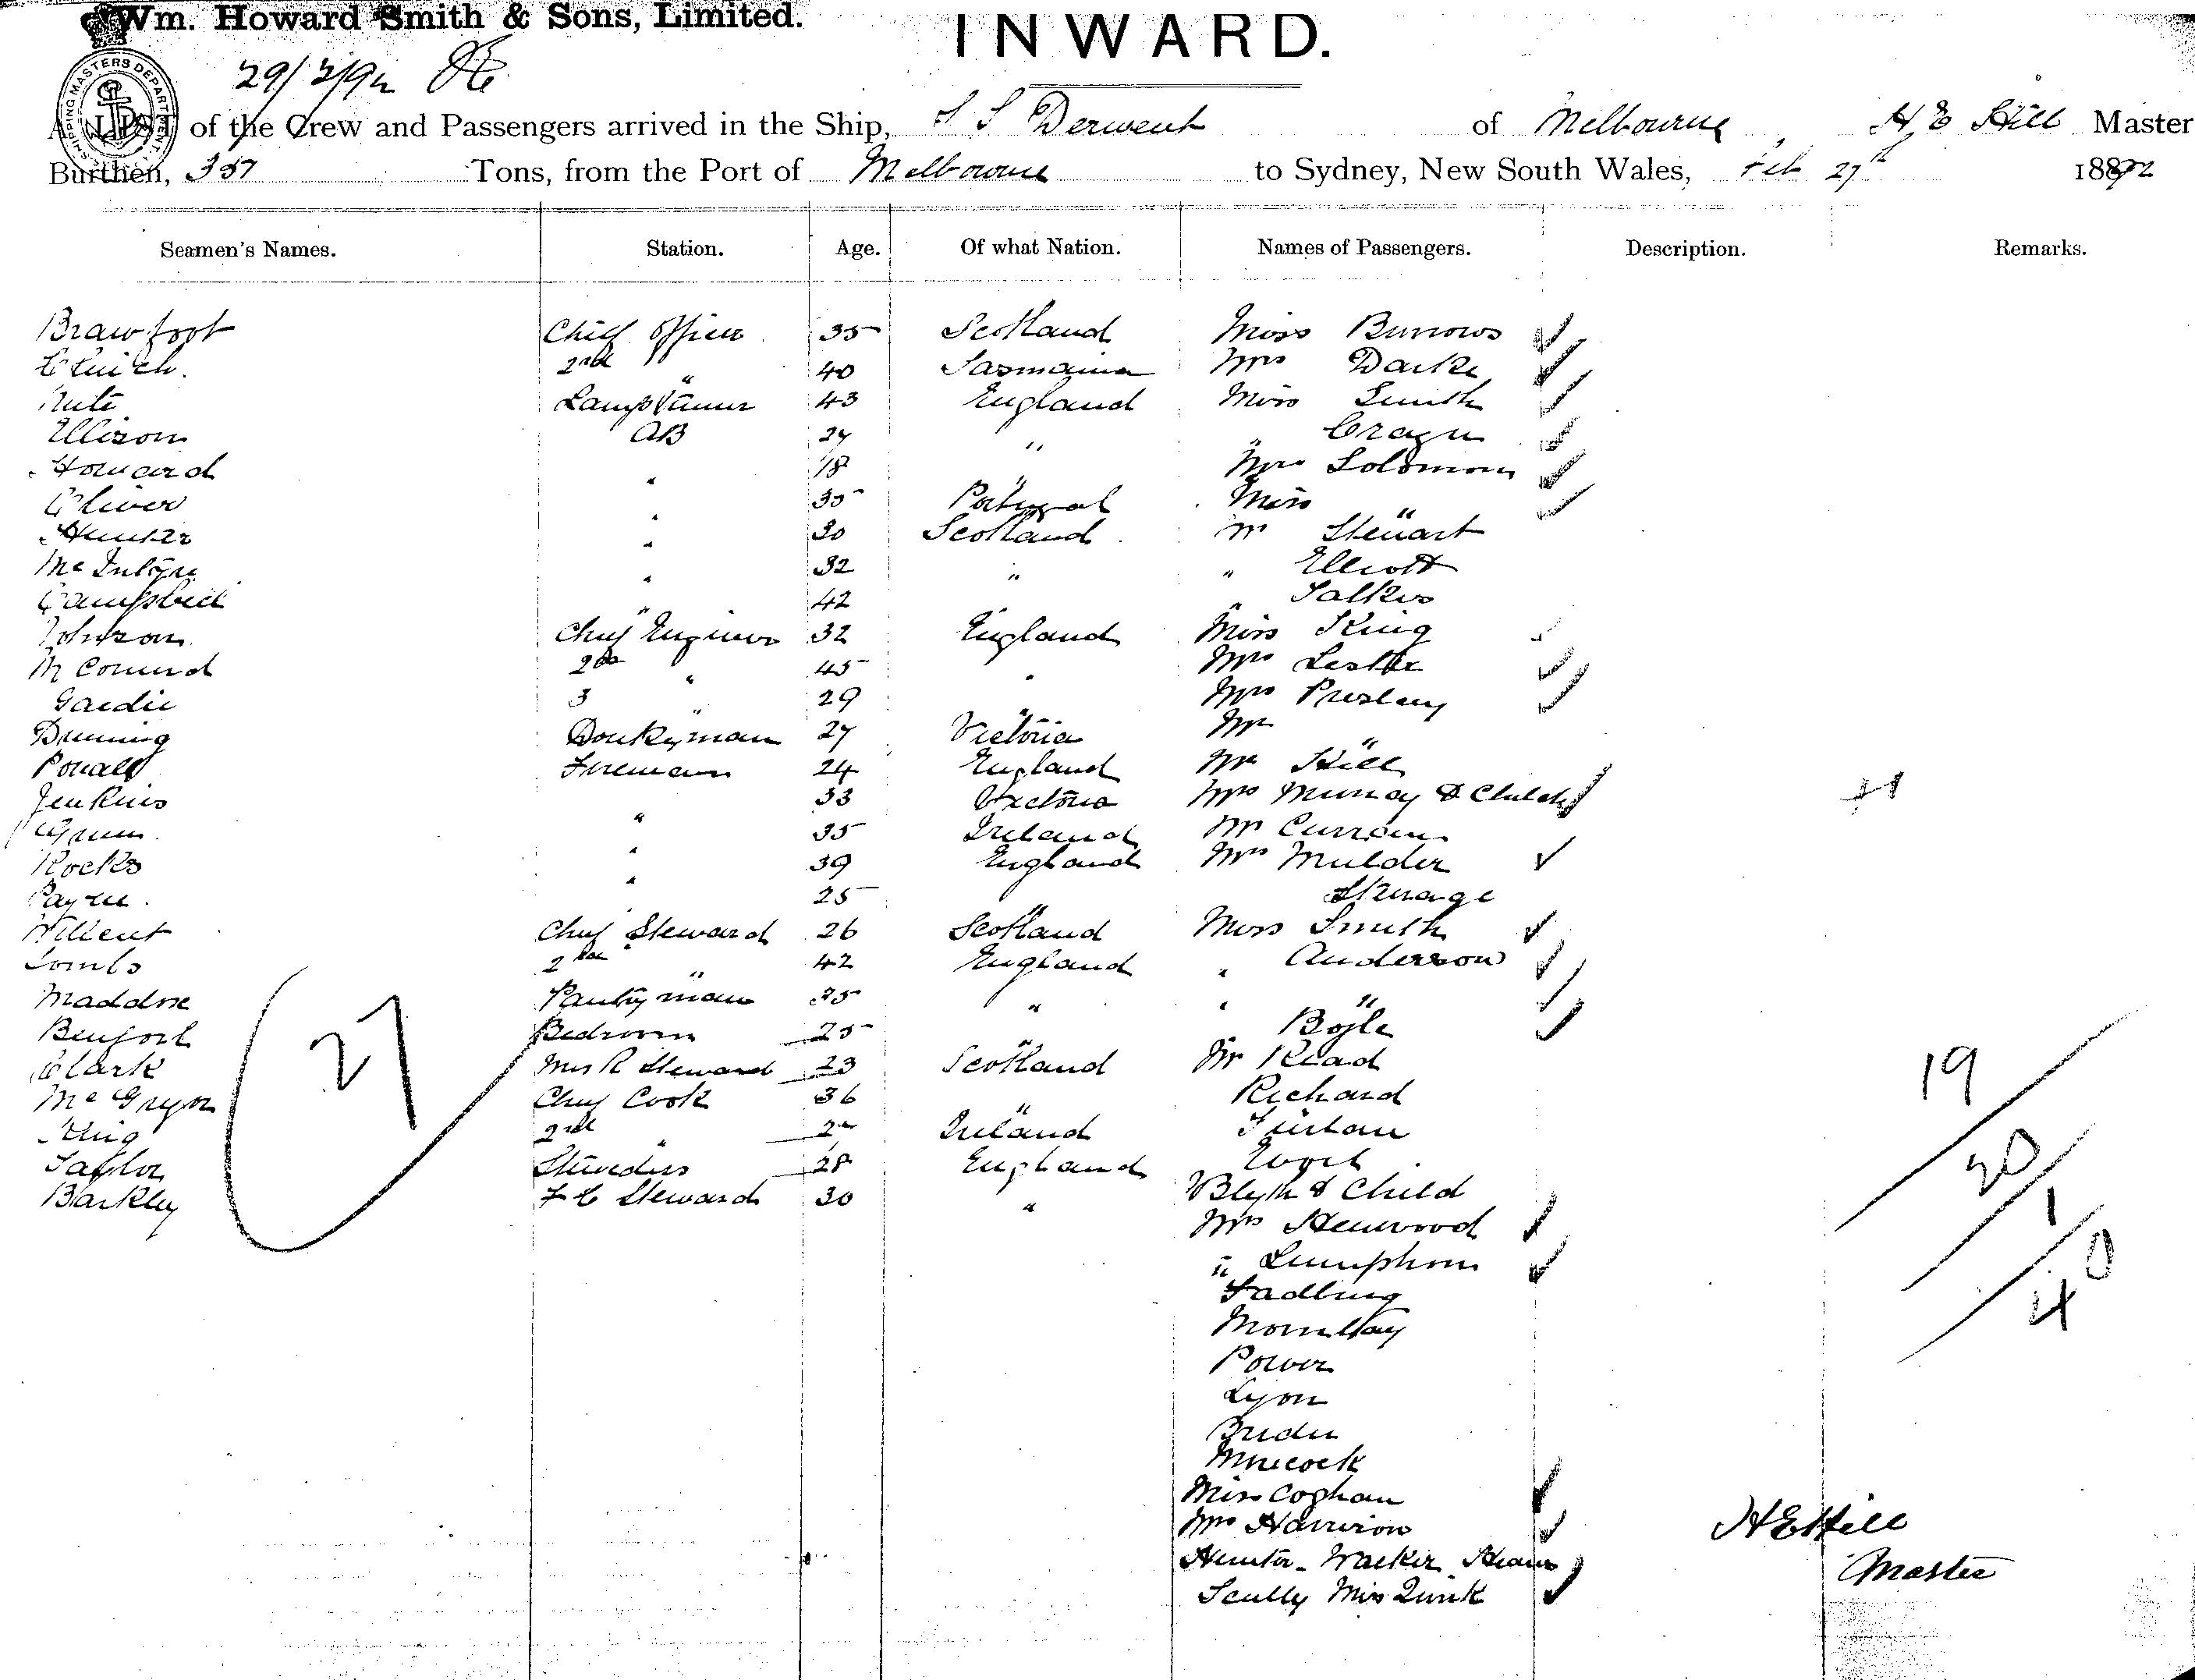 Wm. Howard Smith & Sons, Limited.
INWARD.
29/2/92
SHIPPING MASTERS DEPARTMENT
A LIST of the Crew and Passengers arrived in the Ship, S S Derwent of Melbourne, H E Hill Master
Burthen, 337 Tons, from the Port of Melbourne to Sydney, New South Wales, Feb 27th 1892
Seamen's Names. Station. Age. Of what Nation. Names of Passengers. Description. Remarks.
Chief Officer 35 Scotland Miss Burrows
2nd " 40 Tasmania Mrs Darke
Lamptrimer 43 England Miss Smith
Ellison AB 27 " " 
Howard " 18 " Mrs Solomon
Oliver " 35 Portugal Miss "
Hunter " 30 Scotland Mr Stewart
McIntyre " 32 " " Elliott
Campbell " 42 "
Johnson Chief Engineer 32 England Miss King
2nd " 45 " Mrs Lester
3 " 29 " Mrs Presley
Donkeyman 27 Victoria Mr "
Fireman 24 England Mr Hill
Jenkins " 33 Victoria Mrs Murray & Child
" 35 Ireland Mr Curran
Rocks " 39 England Mrs Mulder
Payne 25 " Steerage
Chief Steward 26 Scotland Miss Smith
2nd " 42 England " Anderson
Maddox Pantryman 25 " " "
Bedroom 25 " Boyle
Clark Mess R Steward 23 Scotland Mr Read
McGregor Chief Cook 36 " Richard
King 2nd " Ireland
Taylor Stewardess 28 England
Barkley F C Steward 30 " Blyth & Child
Mrs Henwood
"
Power
Lyon
Miss Coghan
Mrs Harrison
Hunter Walker
Scully Miss Quirk
27
19
20
1
0
H E Hill
Master